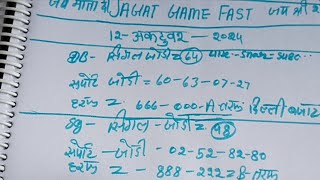 जय माता दी JAGAT GAME FAST जय श्री
12- अक्टूबर - 2024
DB- सिंगल जोडी = 64
सपोट जोडी = 60-63-07-27
हरूफ = 666-000-A तरफ दिल्ली बजार
सिंगल - जोडी = 98
सपोट- जोडी - 02-52-82-80
हरूफ = 888-222 = B- तरफ